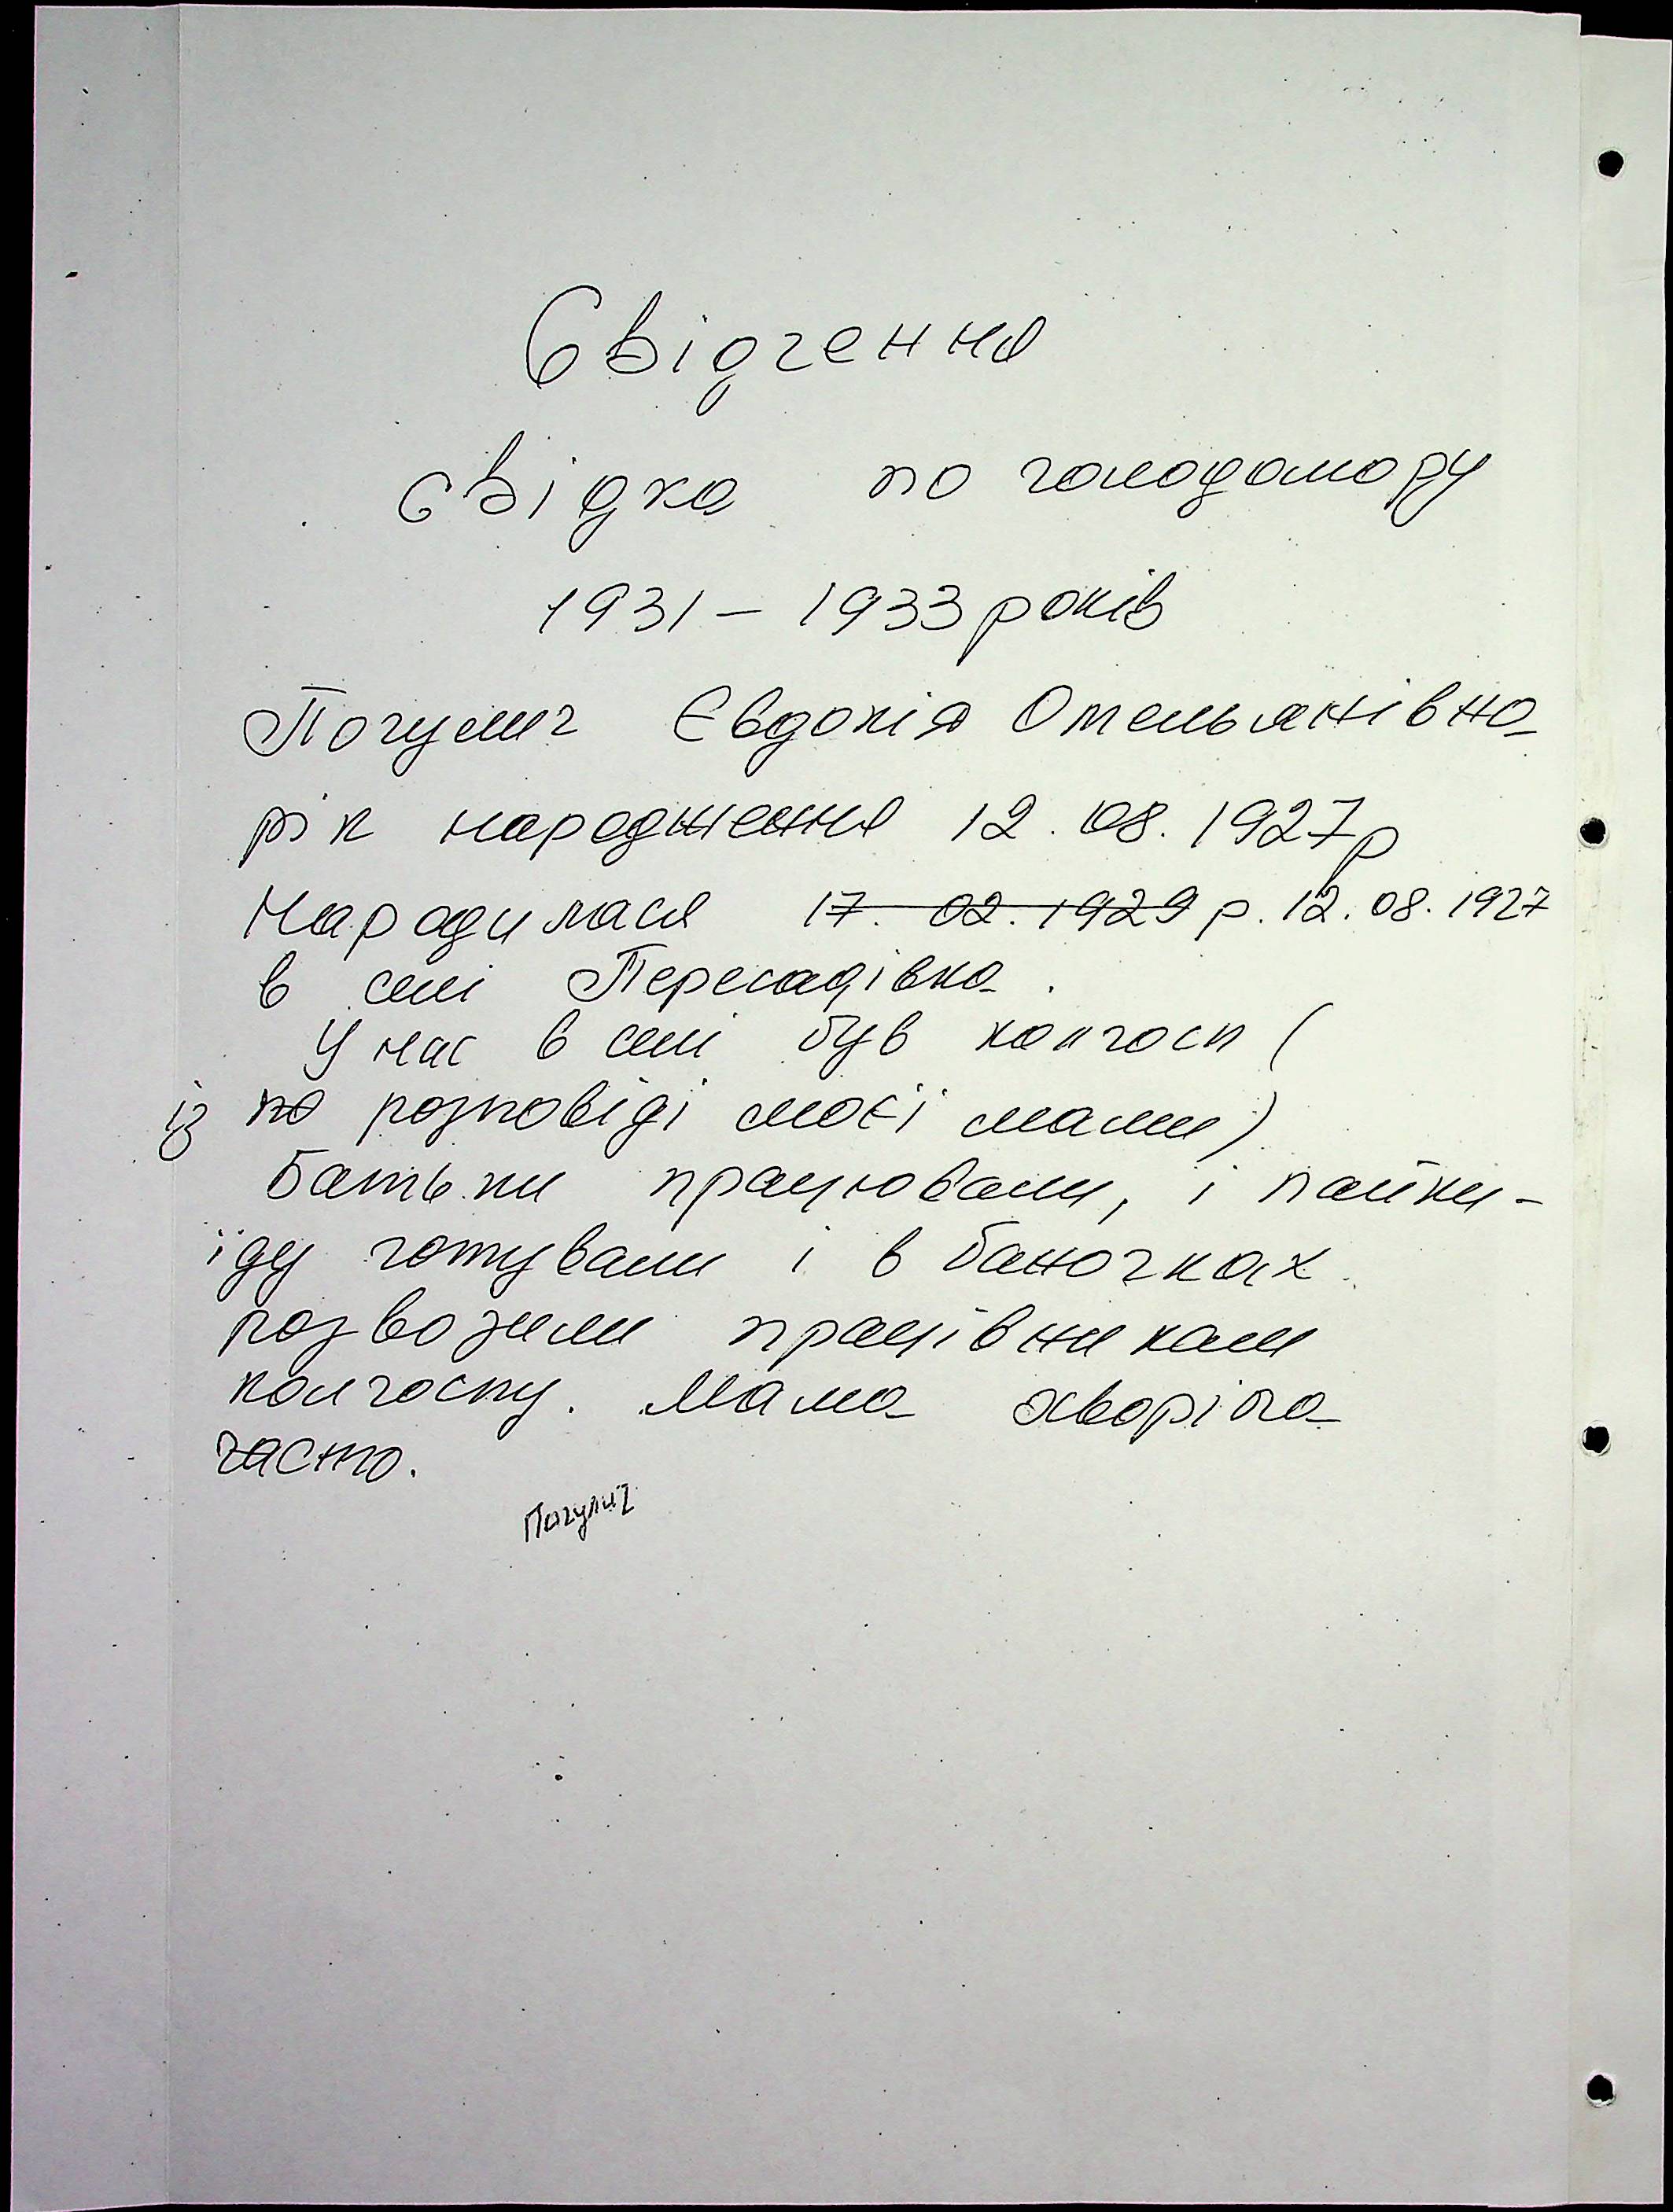 Свідчення
свідка по голодомору
1931 – 1933 років
Почулич Євдокія Омельянівна
рік народження 12.08.1927р
Народилася 17.02.1929 р. 12.08.1927
в селі Пересадівка.
У нас в селі був колгосп (
із по розповіді моєї мами)
Батьки працювали, і пайки-
їду готували і в баночках
розвозили працівникам
колгоспу. Мама хворіла
часто.
Почулич